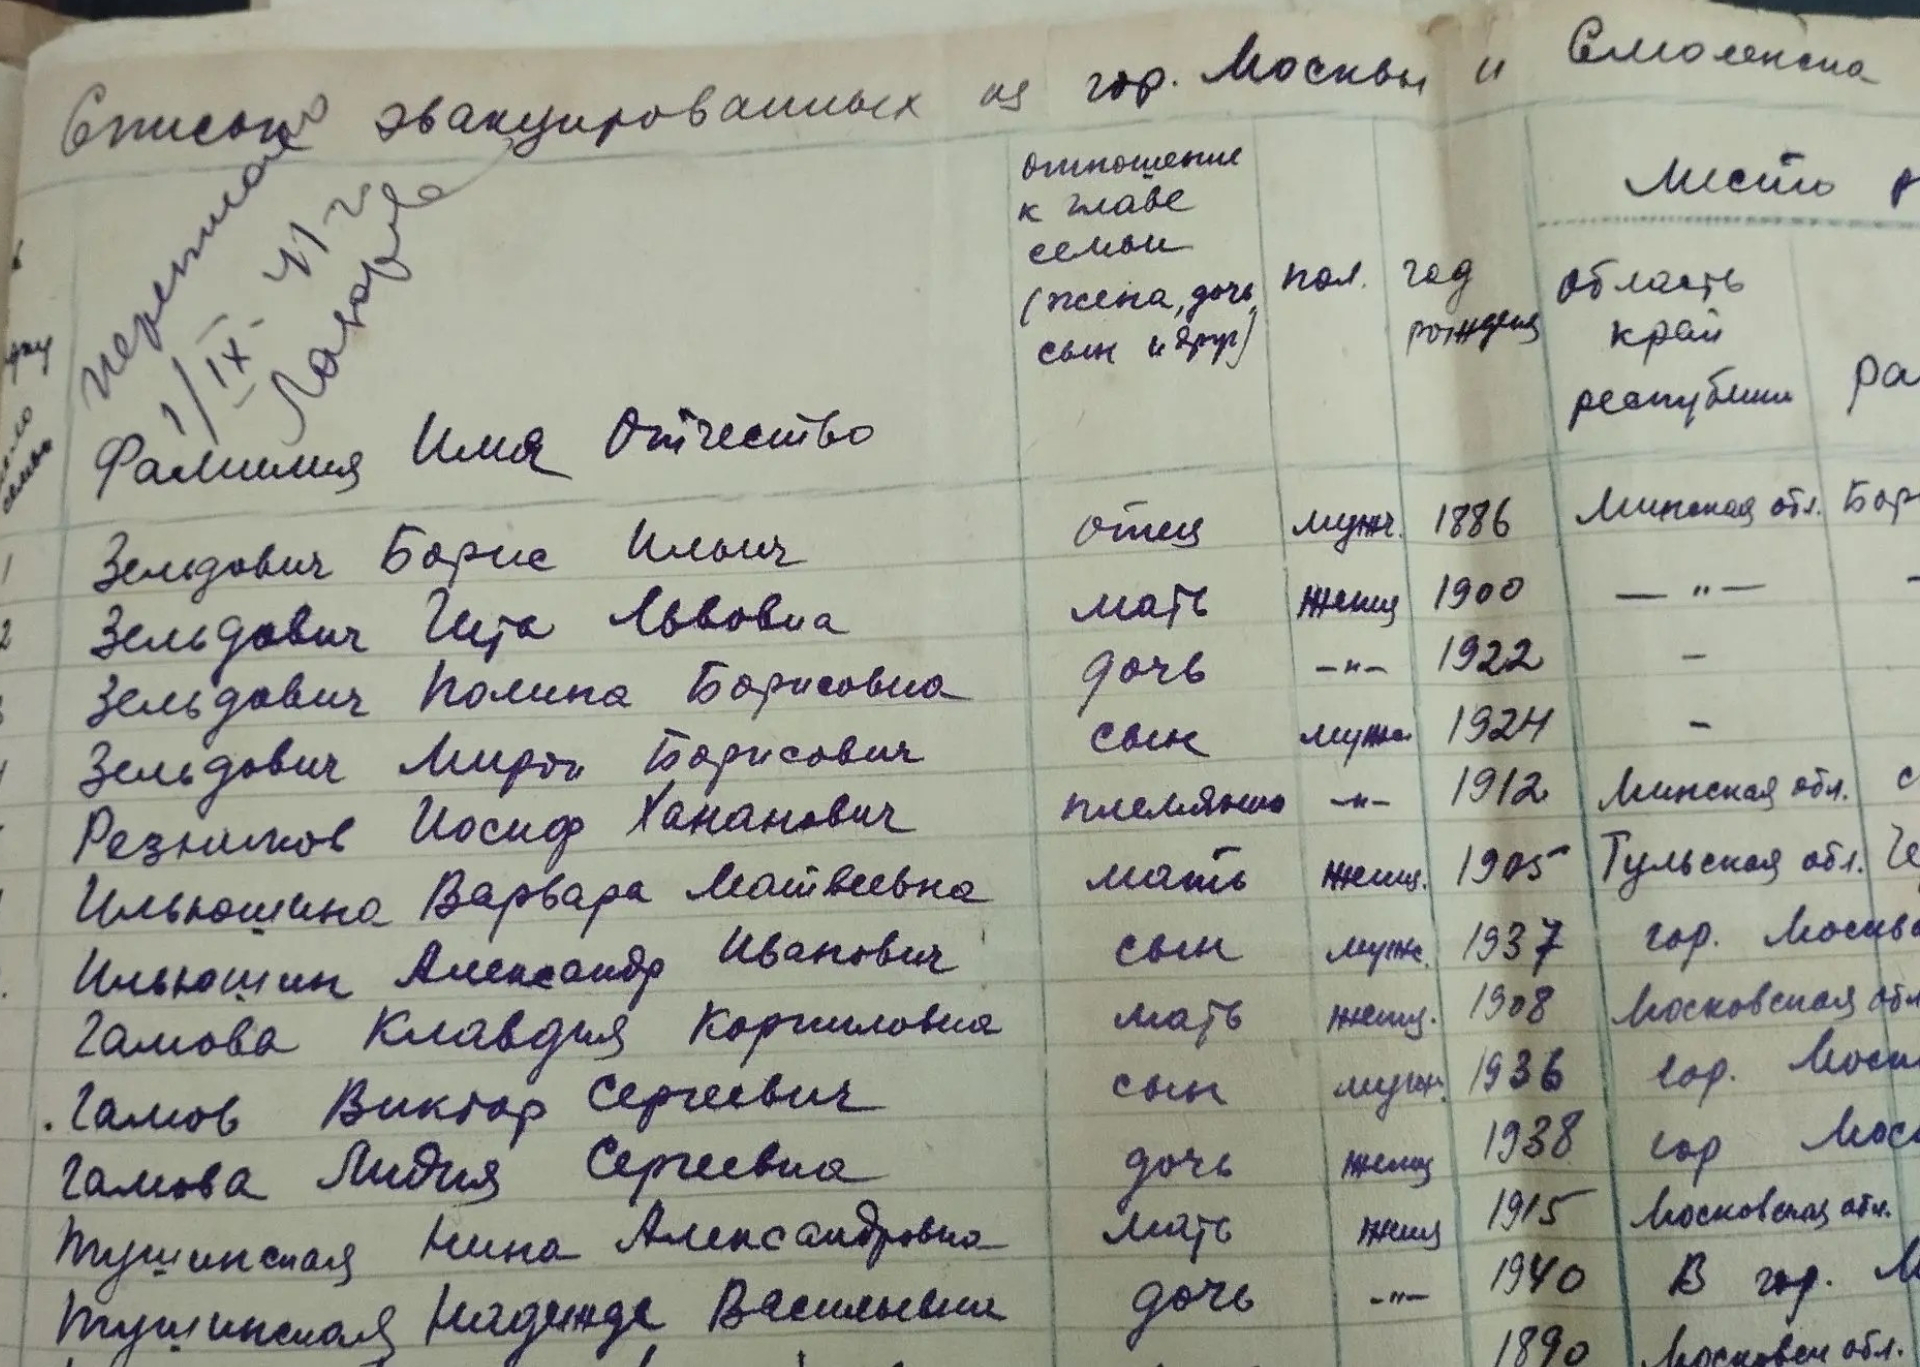 Список эвакуированных из гор. Москвы и Смоленска
1/IX-41 г
отношение к главе семьи (жена, дочь, сын и друг)
пол.
год рожден
Место
область край республики
Фамилия Имя Отчество
1 Зельдович Борис Ильич отец мужч. 1886 Минская обл. Бор
2 Зельдович Гита Львовна мать женщ 1900 — " —
3 Зельдович Полина Борисовна дочь -"- 1922 -
Зельдович Мирон Борисович сын мужч. 1924 -
Резников Иосиф Хананович племянник -"- 1912 Минская обл. С
Ильюшина Варвара Матвеевна мать женщ. 1905 Тульская обл. Че
Ильюшин Александр Иванович сын мужч. 1937 гор. Москва
Гамова Клавдия Корниловна мать женщ. 1908 Московская обл
Гамов Виктор Сергеевич сын мужч. 1936 гор. Моск
Гамова Лидия Сергеевна дочь женщ 1938 гор Моск
Тушинская Нина Александровна мать женщ 1915 Московская обл.
Тушинская Надежда Васильевна дочь -"- 1940 В гор. М
1890 Московск обл.